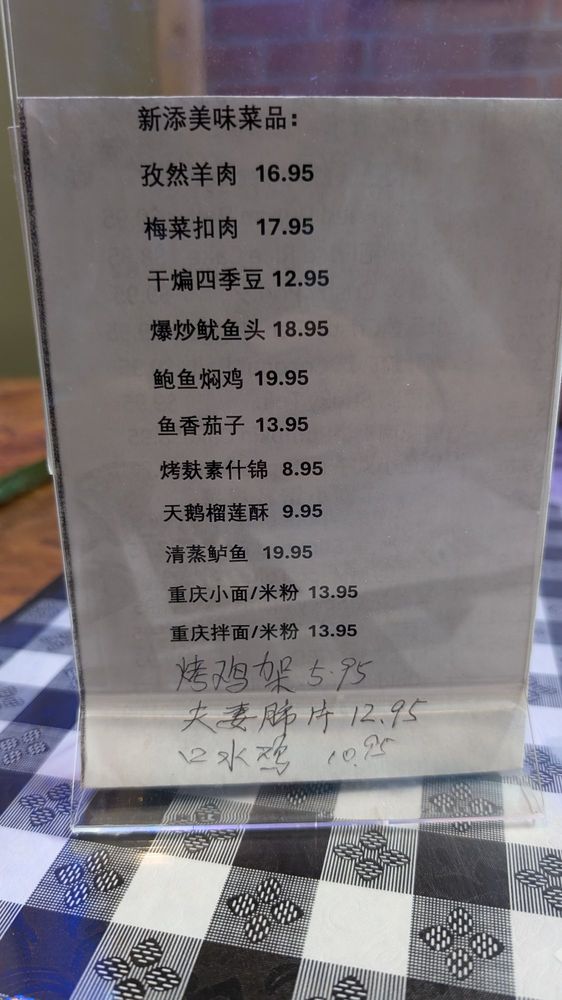 新添美味菜品:
孜然羊肉 16.95
梅菜扣肉 17.95
干煸四季豆 12.95
爆炒鱿鱼头 18.95
鲍鱼焖鸡 19.95
鱼香茄子 13.95
烤麸素什锦 8.95
天鹅榴莲酥 9.95
清蒸鲈鱼 19.95
重庆小面/米粉 13.95
重庆拌面/米粉 13.95
烤鸡架 5.95
夫妻肺片 12.95
口水鸡 10.95